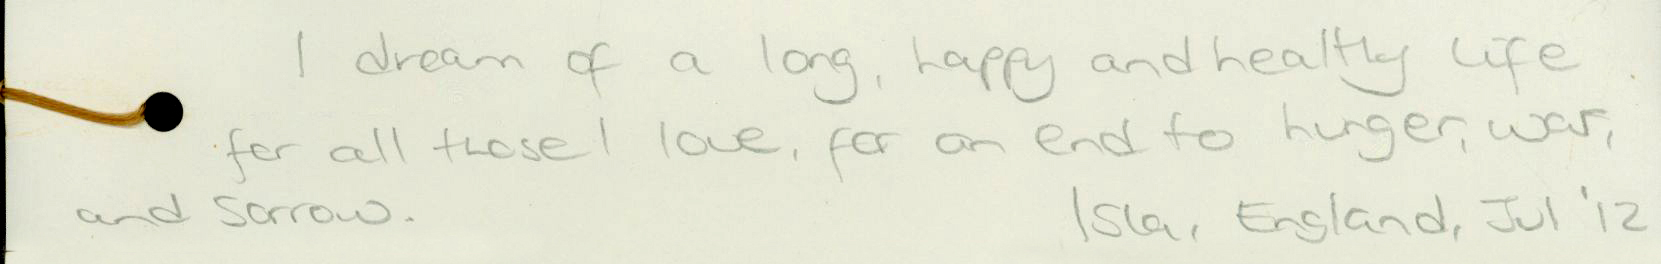 I dream of a long, happy and healthy life
for all those I love, for an end to hunger, war,
and sorrow.
Isla, England, Jul '12